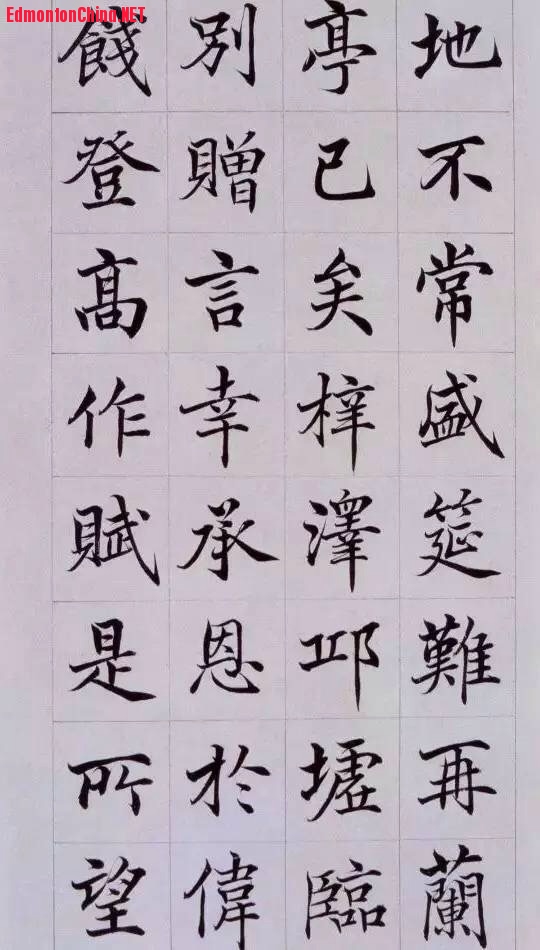 EdmontonChina.NET
地不常盛筵難再蘭
亭已矣梓澤邱墟臨
別贈言幸承恩於偉
餞登高作賦是所望